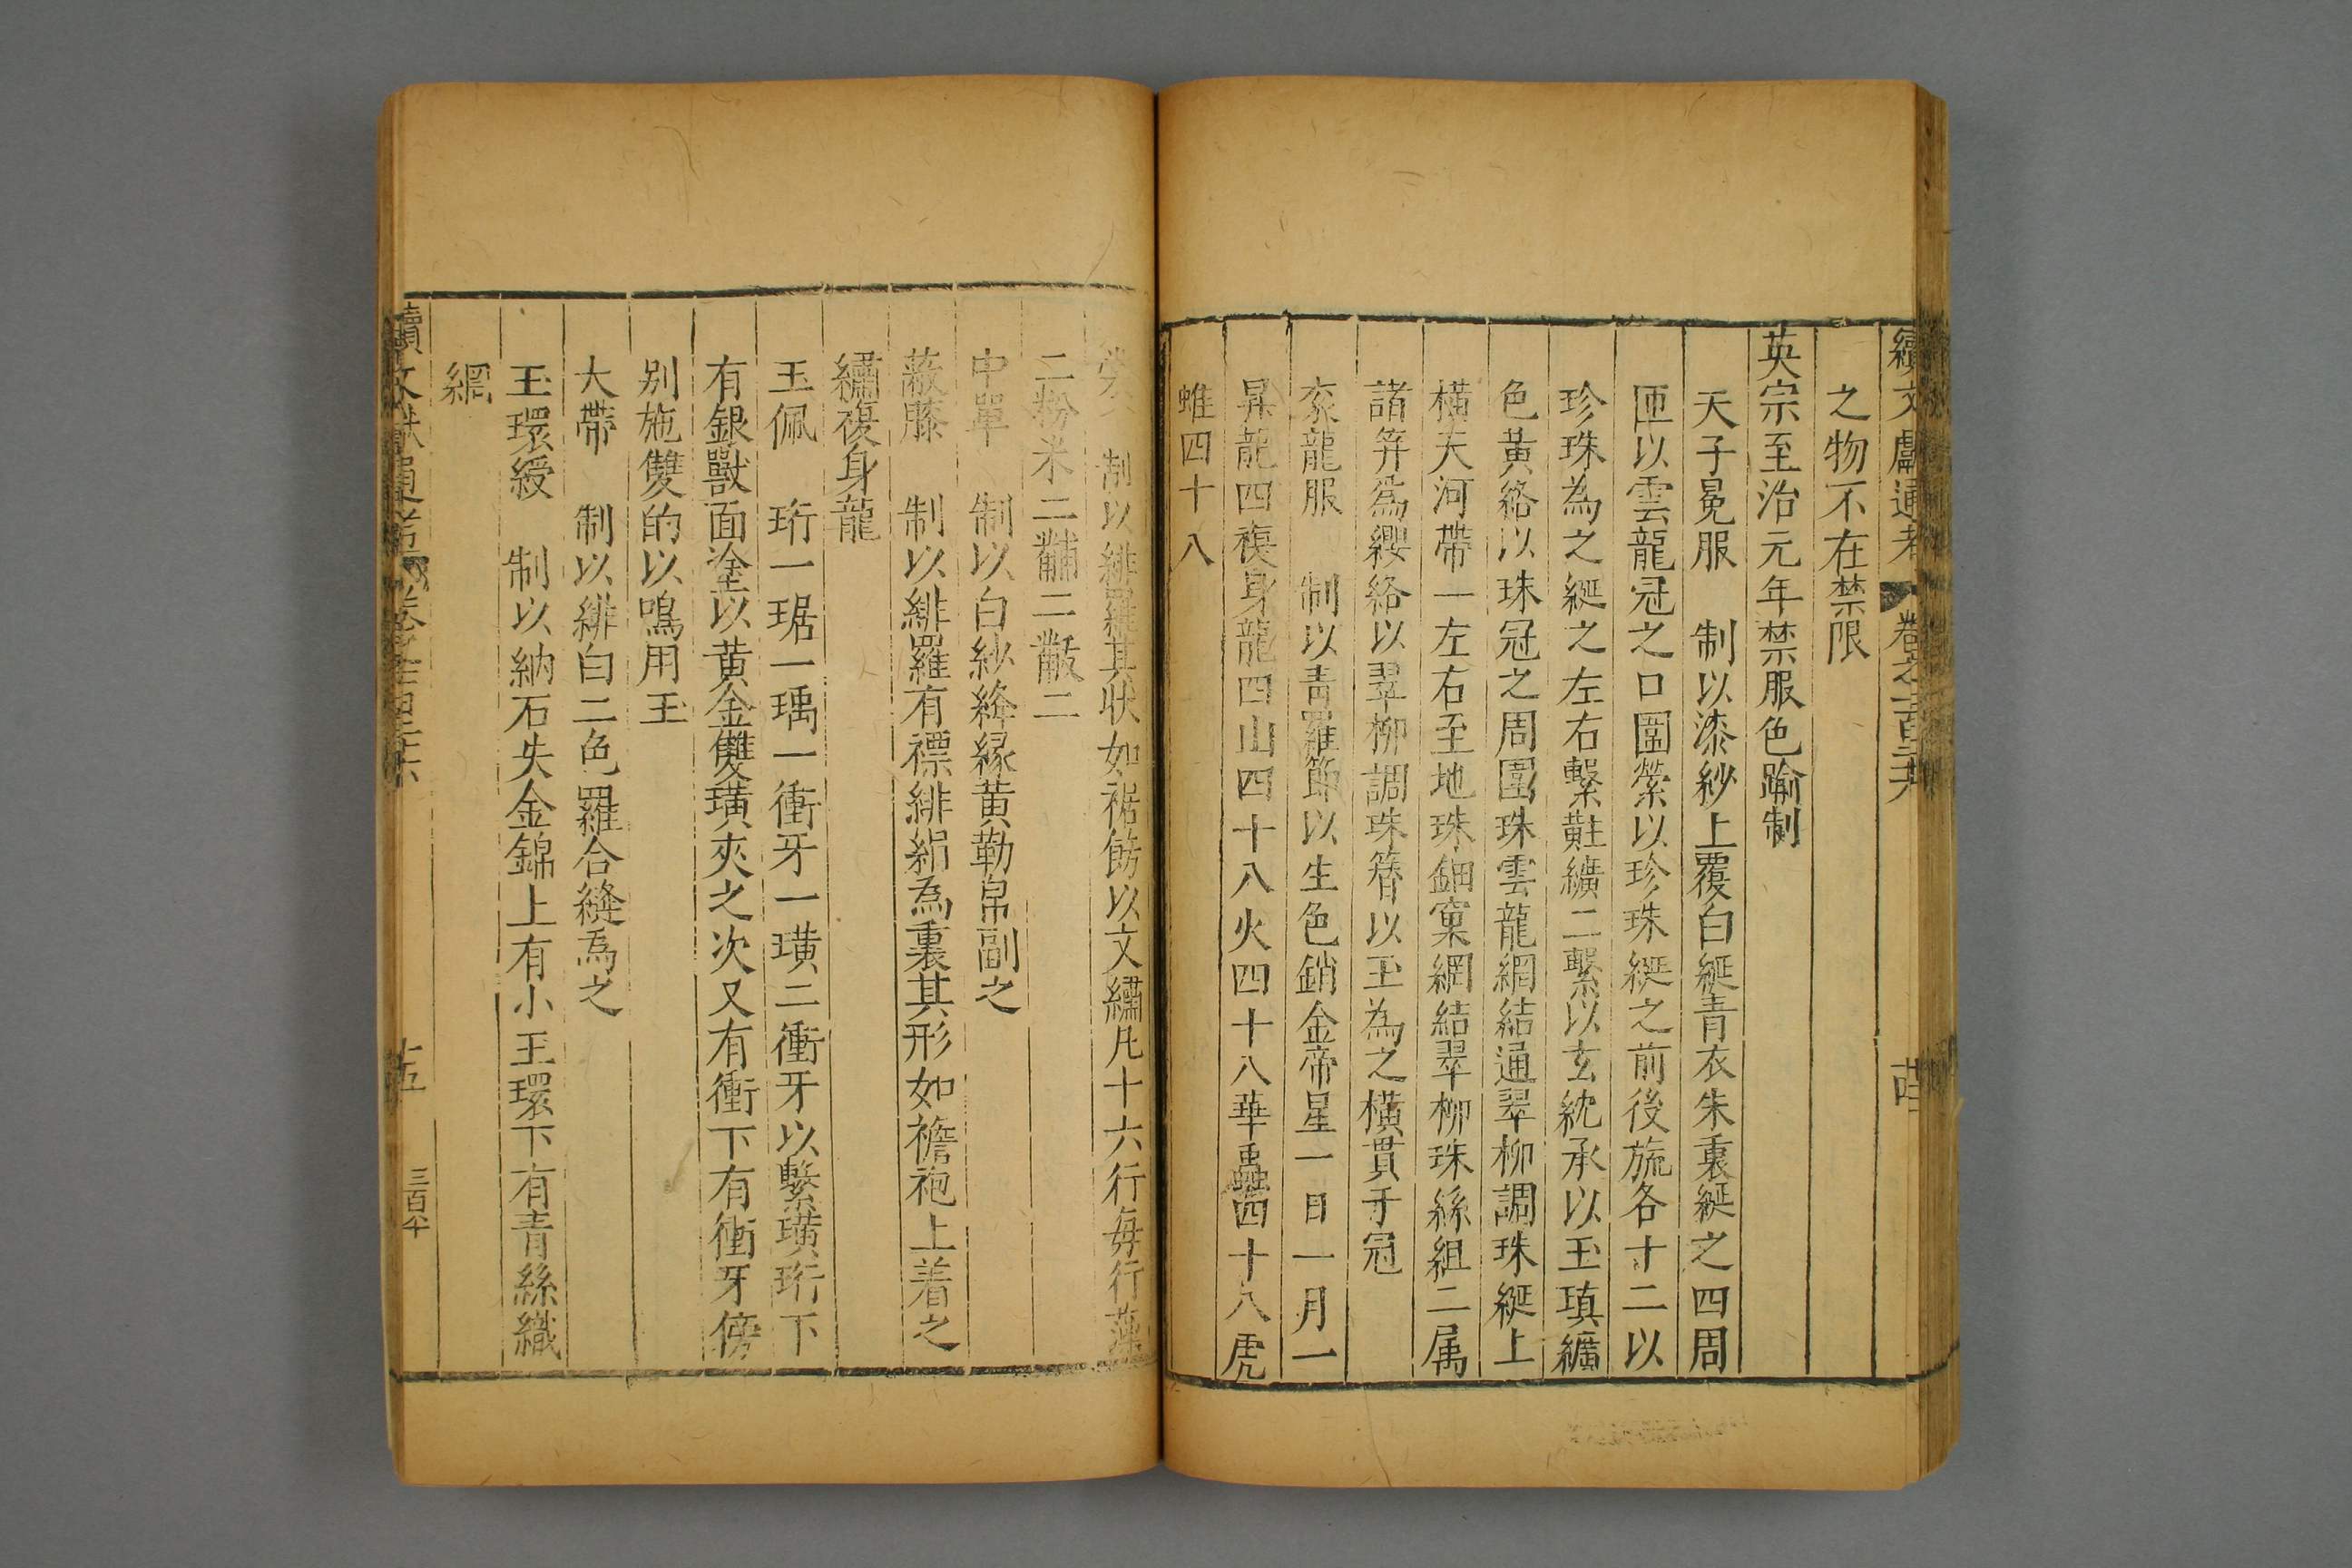 續文獻通考 卷之一百二十六
之物不在禁限
英宗至治元年禁服色踰制
天子冕服 制以漆紗上覆白綖青衣朱裏綖之四周
匝以雲龍冠之口圍縈以珍珠綖之前後旒各十二以
珍珠為之綖之左右繫黈纊二繫以玄紞承以玉瑱纊
色黃絡以珠冠之周圍珠雲龍網結通翠柳調珠綖上
橫天河帶一左右至地珠鈿窠網結翠柳珠絲組二属
諸笄爲纓絡以翠柳調珠簪以玉為之橫貫于冠
衮龍服 制以青羅飾以生色銷金帝星一日一月一
昇龍四複身龍四山四十八火四十八華蟲四十八虎
蜼四十八
裳 制以緋羅其狀如裾飾以文繡凡十六行每行藻
二粉米二黼二黻二
中單 制以白紗絳縁黄勒帛副之
蔽膝 制以緋羅有褾緋絹為裏其形如襜袍上着之
繡複身龍
玉佩 珩一琚一瑀一衝牙一璜二衝牙以繫璜珩下
有銀獸面塗以黄金雙璜夾之次又有衝下有衝牙傍
别施雙的以鳴用玉
大帶 制以緋白二色羅合縫爲之
玉環綬 制以納石失金錦上有小玉環下有青絲織
網
十五